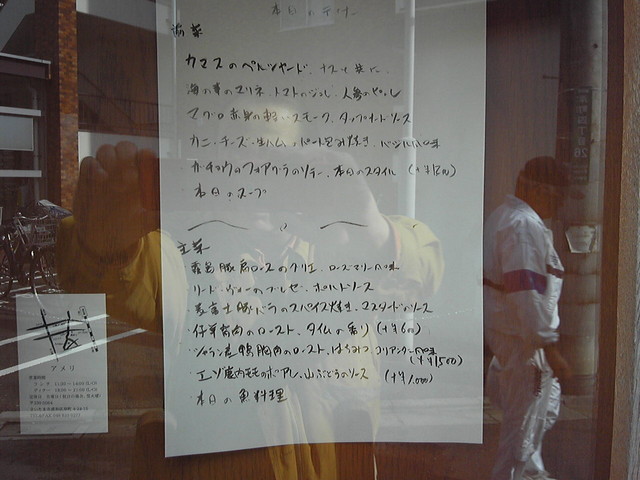 本日のディナー
前菜
カマスのペルシヤード、ナスと共に
海の幸のマリネ トマトのジュレ、人参のピュレ
マグロ赤身の軽いスモーク、タップナードソース
カニ・チーズ・生ハムのパートブリック包み焼き、バジル風味
ガチョウのフォアグラのソテー、本日のスタイル (+¥1200)
本日のスープ
主菜
霧島豚肩ロースのグリエ、ローズマリー風味
リード・ヴォーのブレゼ、ポルトソース
麦富士豚バラのスパイス焼き、マスタードソース
仔羊肩肉のロースト、タイムの香り (+¥600)
シャラン産鴨胸肉のロースト、はちみつ、コリアンダー風味
(+¥1,500)
エゾ鹿内モモのポアレ、山ぶどうのソース (+¥1,000)
本日の魚料理
アメリ
営業時間